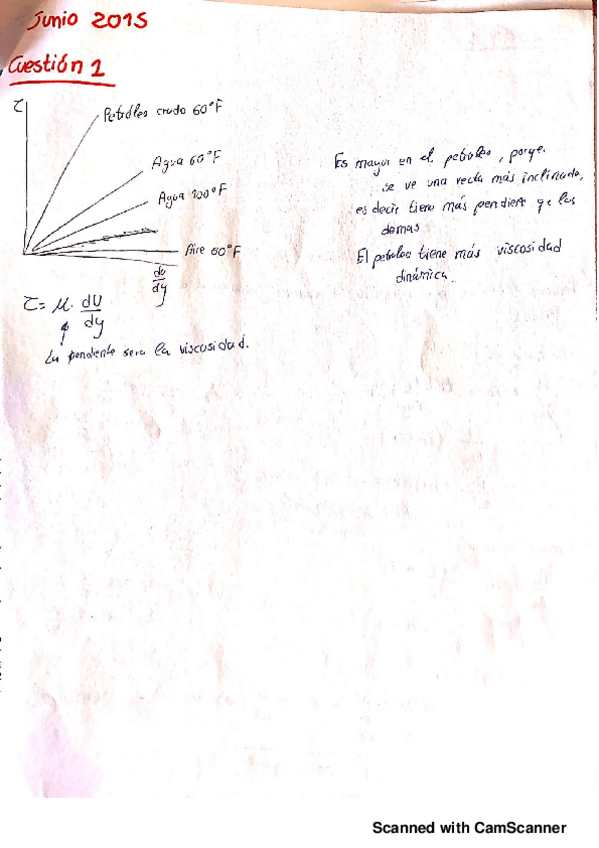 Junio 2015
Cuestión 1
τ
Petróleo crudo 60°F
Agua 60°F
Agua 100°F
Aire 60°F
du
dy
τ = μ. dU
dy
La pendiente sera la viscosidad.
Es mayor en el petroleo, porqe.
se ve una recta más inclinada,
es decir tiene más pendiente qe las
demas
El petroleo tiene más viscosidad
dinámica.
Scanned with CamScanner